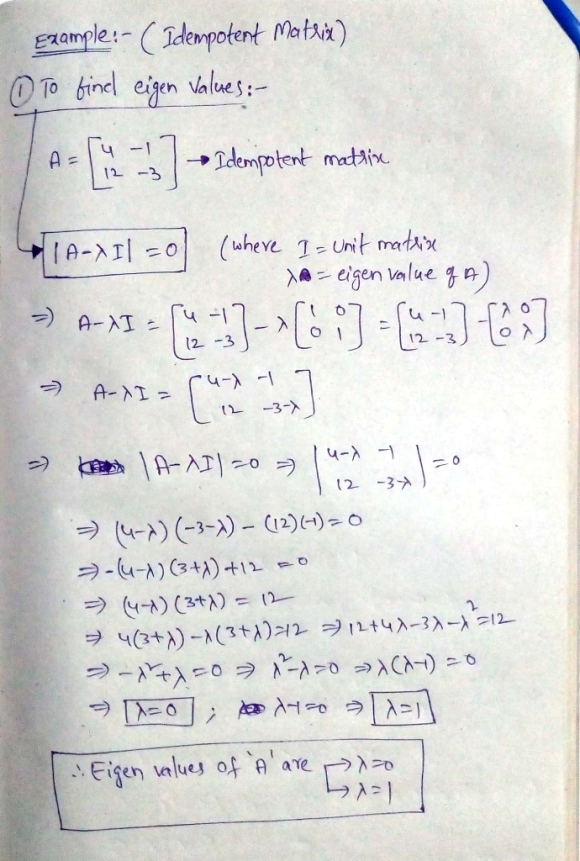 Example:- (Idempotent Matrix)
① To find eigen values:-
A = [4 -1; 12 -3] → Idempotent matrix
|A-λI| = 0 (where I = unit matrix
λ = eigen value of A)
⇒ A-λI = [4 -1; 12 -3] - λ[1 0; 0 1] = [4 -1; 12 -3] - [λ 0; 0 λ]
⇒ A-λI = [4-λ -1; 12 -3-λ]
⇒ |A-λI| = 0 ⇒ |4-λ -1; 12 -3-λ| = 0
⇒ (4-λ)(-3-λ) - (12)(-1) = 0
⇒ -(4-λ)(3+λ) + 12 = 0
⇒ (4-λ)(3+λ) = 12
⇒ 4(3+λ) - λ(3+λ) = 12 ⇒ 12+4λ-3λ-λ² = 12
⇒ -λ²+λ = 0 ⇒ λ²-λ = 0 ⇒ λ(λ-1) = 0
⇒ λ=0 ; λ-1=0 ⇒ λ=1
∴ Eigen values of 'A' are → λ=0
→ λ=1